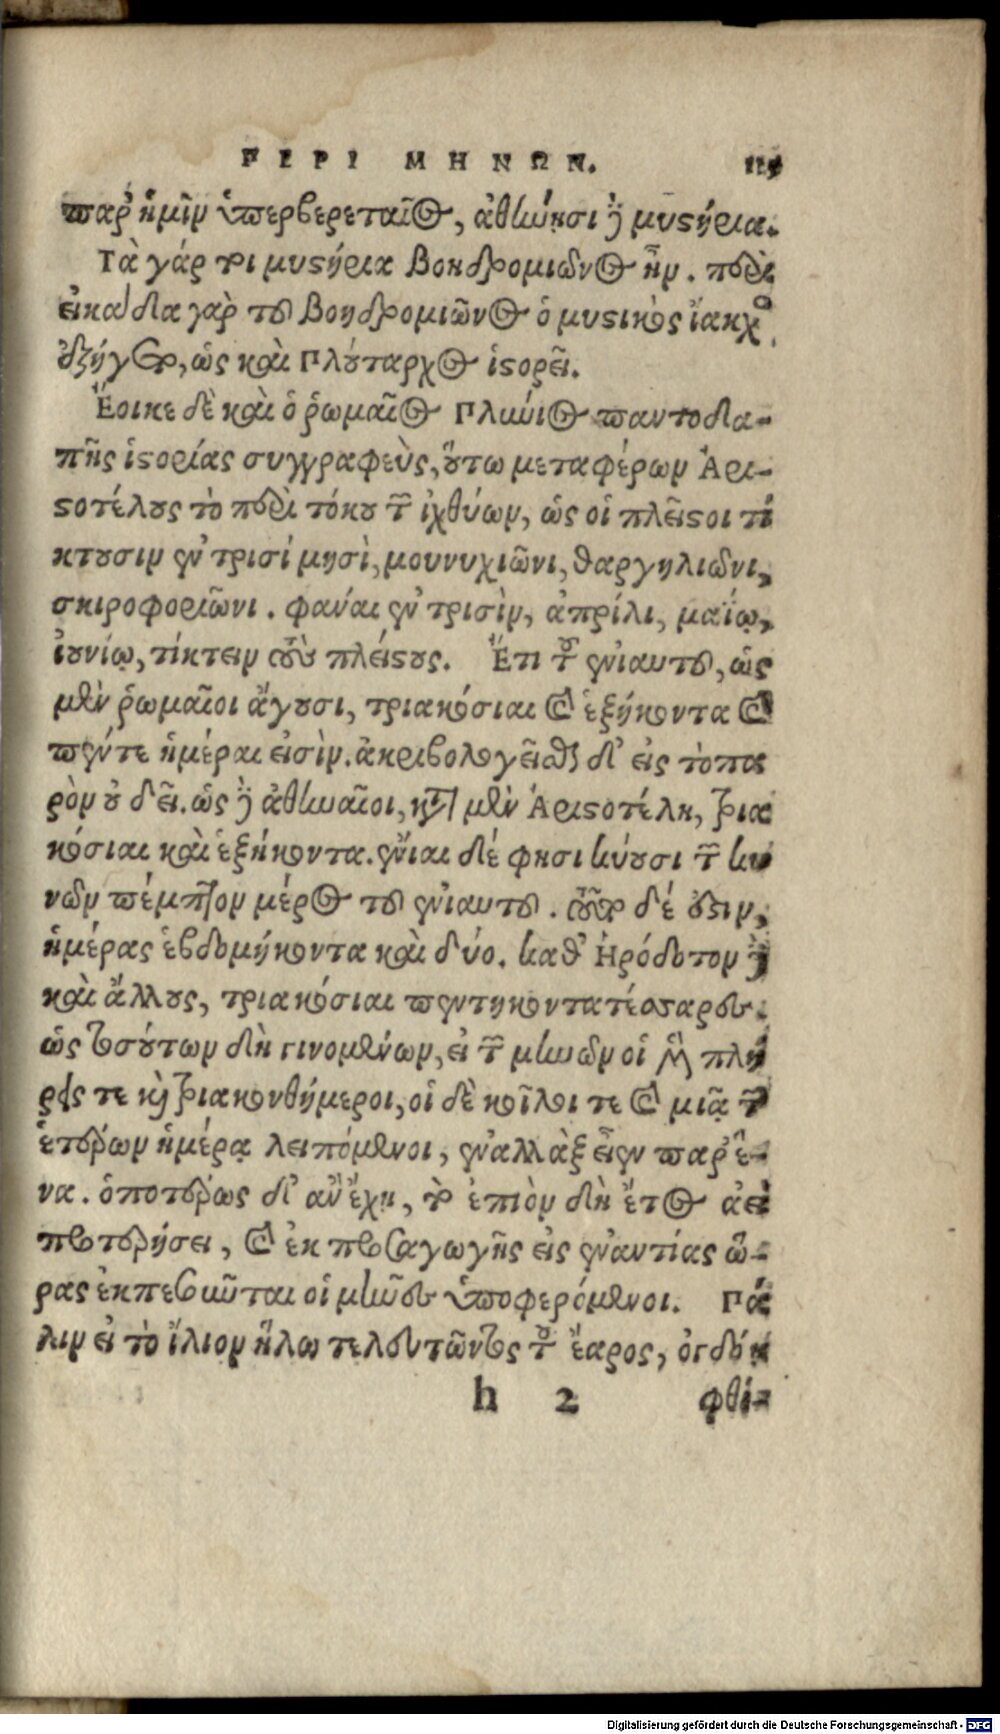 ΠΕΡΙ ΜΗΝΩΝ.
παρ' ἡμῖν ὑπερβερεταῖος, ἀθήνησι ἢ μυστήρια.
Τὰ γάρ τοι μυστήρια βοηδρομιῶνος ἦν. περὶ
εἰκάδα γὰρ τοῦ βοηδρομιῶνος ὁ μυστικὸς ἴακχος
ἐξήγετο, ὡς καὶ Πλούταρχος ἱστορεῖ.
Ἔοικε δὲ καὶ ὁ ῥωμαῖος Πλίνιος παντοδα-
πῆς ἱστορίας συγγραφεὺς, οὕτω μεταφέρων Ἀρι-
στοτέλους τὸ περὶ τόκου τῶν ἰχθύων, ὡς οἱ πλεῖστοι τί
κτουσιν ἐν τρισὶ μησὶ, μουνυχιῶνι, θαργηλιῶνι,
σκιροφοριῶνι. φάναι ἐν τρισὶν, ἀπρίλι, μαΐῳ,
ἰουνίῳ, τίκτειν τοὺς πλείστους. Ἔτι τοῦ ἐνιαυτοῦ, ὡς
μὲν ῥωμαῖοι ἄγουσι, τριακόσιαι καὶ ἑξήκοντα καὶ
πέντε ἡμέραι εἰσὶν. ἀκριβολογεῖσθαι δ' εἰς τὸ πα
ρὸν οὐ δεῖ. ὡς δὲ ἀθηναῖοι, κατὰ μὲν Ἀριστοτέλη, τρια
κόσιαι καὶ ἑξήκοντα. ἔνιαι δέ φησι κύουσι τῶν κυ
νῶν πέμπτον μέρος τοῦ ἐνιαυτοῦ. τοῦτο δέ ἐστιν,
ἡμέρας ἑβδομήκοντα καὶ δύο. καθ' Ἡρόδοτον δὲ
καὶ ἄλλους, τριακόσιαι πεντηκοντατέσσαρες.
ὡς τοσούτων δὴ γινομένων, εἰ τῶν μηνῶν οἱ μὲν πλή
ρεις τε καὶ τριακονθήμεροι, οἱ δὲ κοῖλοι τε καὶ μιᾷ τῶν
ἑτέρων ἡμέρᾳ λειπόμενοι, ἐναλλὰξ εἶεν παρ' ἕ-
να. ὁποτέρως δ' ἂν ἔχῃ, τὸ ἐπιὸν δὴ ἔτος ἀεὶ
προτερήσει, καὶ ἐκ προσαγωγῆς εἰς ἐναντίας ὥ-
ρας ἐκπεσοῦνται οἱ μῆνες ὑποφερόμενοι. Πά
λιν εἰ τὸ ἴλιον ἥλω τελευτῶντος τοῦ ἔαρος, ὀγδόῃ
h 2 φθί-
Digitalisierung gefördert durch die Deutsche Forschungsgemeinschaft - DFG